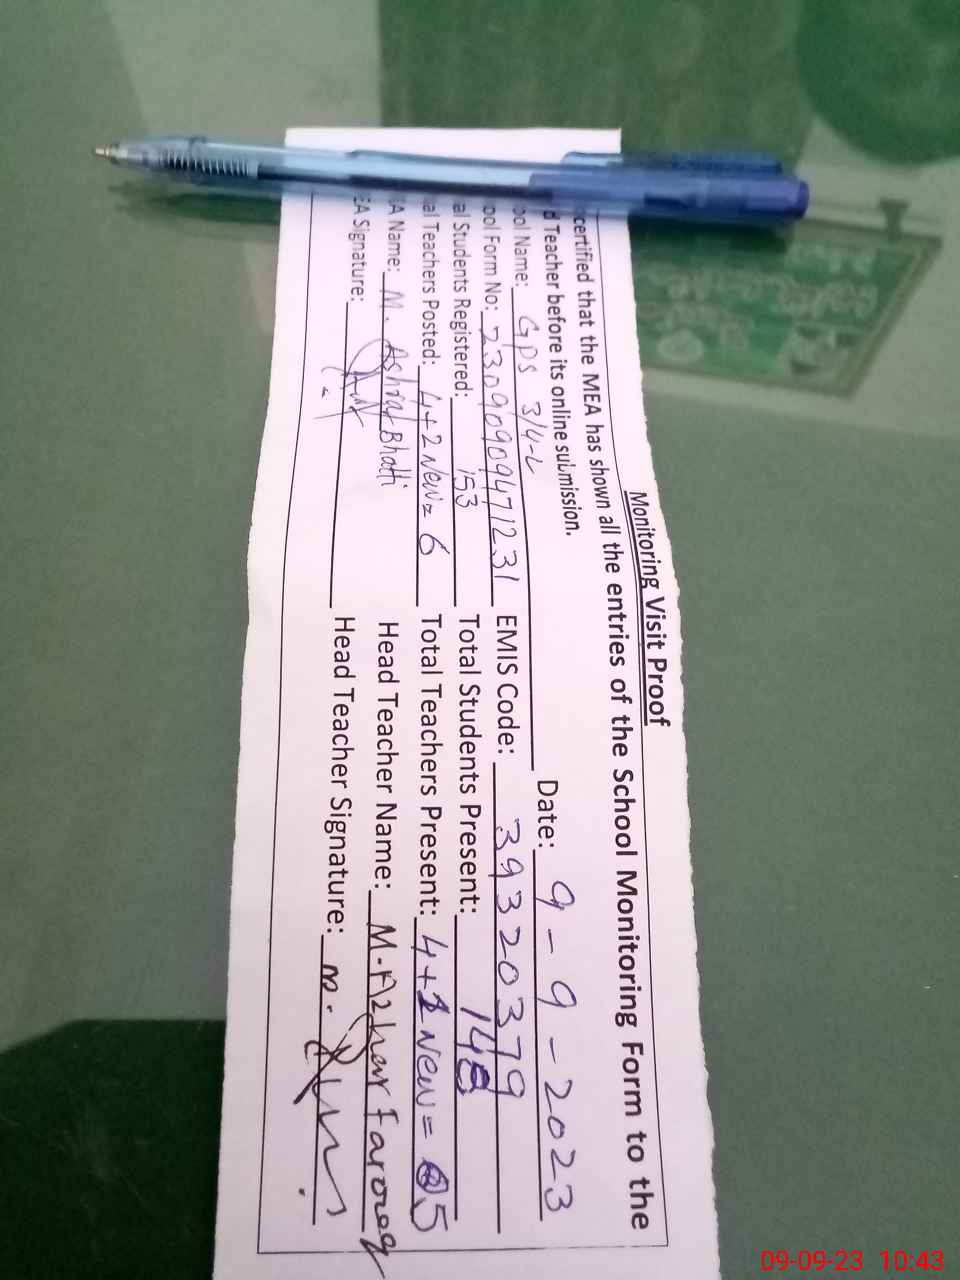 Monitoring Visit Proof
certified that the MEA has shown all the entries of the School Monitoring Form to the
d Teacher before its online submission.
Date: 9-9-2023
ool Name: GPS 3/4-L
ool Form No: 2309090471231 EMIS Code: 39320379
al Students Registered: 153 Total Students Present: 148
al Teachers Posted: 4+2 New = 6 Total Teachers Present: 4+1 New = 5
EA Name: M. Ashraf Bhatti Head Teacher Name: M. Azhar Farooq
EA Signature: Head Teacher Signature: m.
09-09-23 10:43